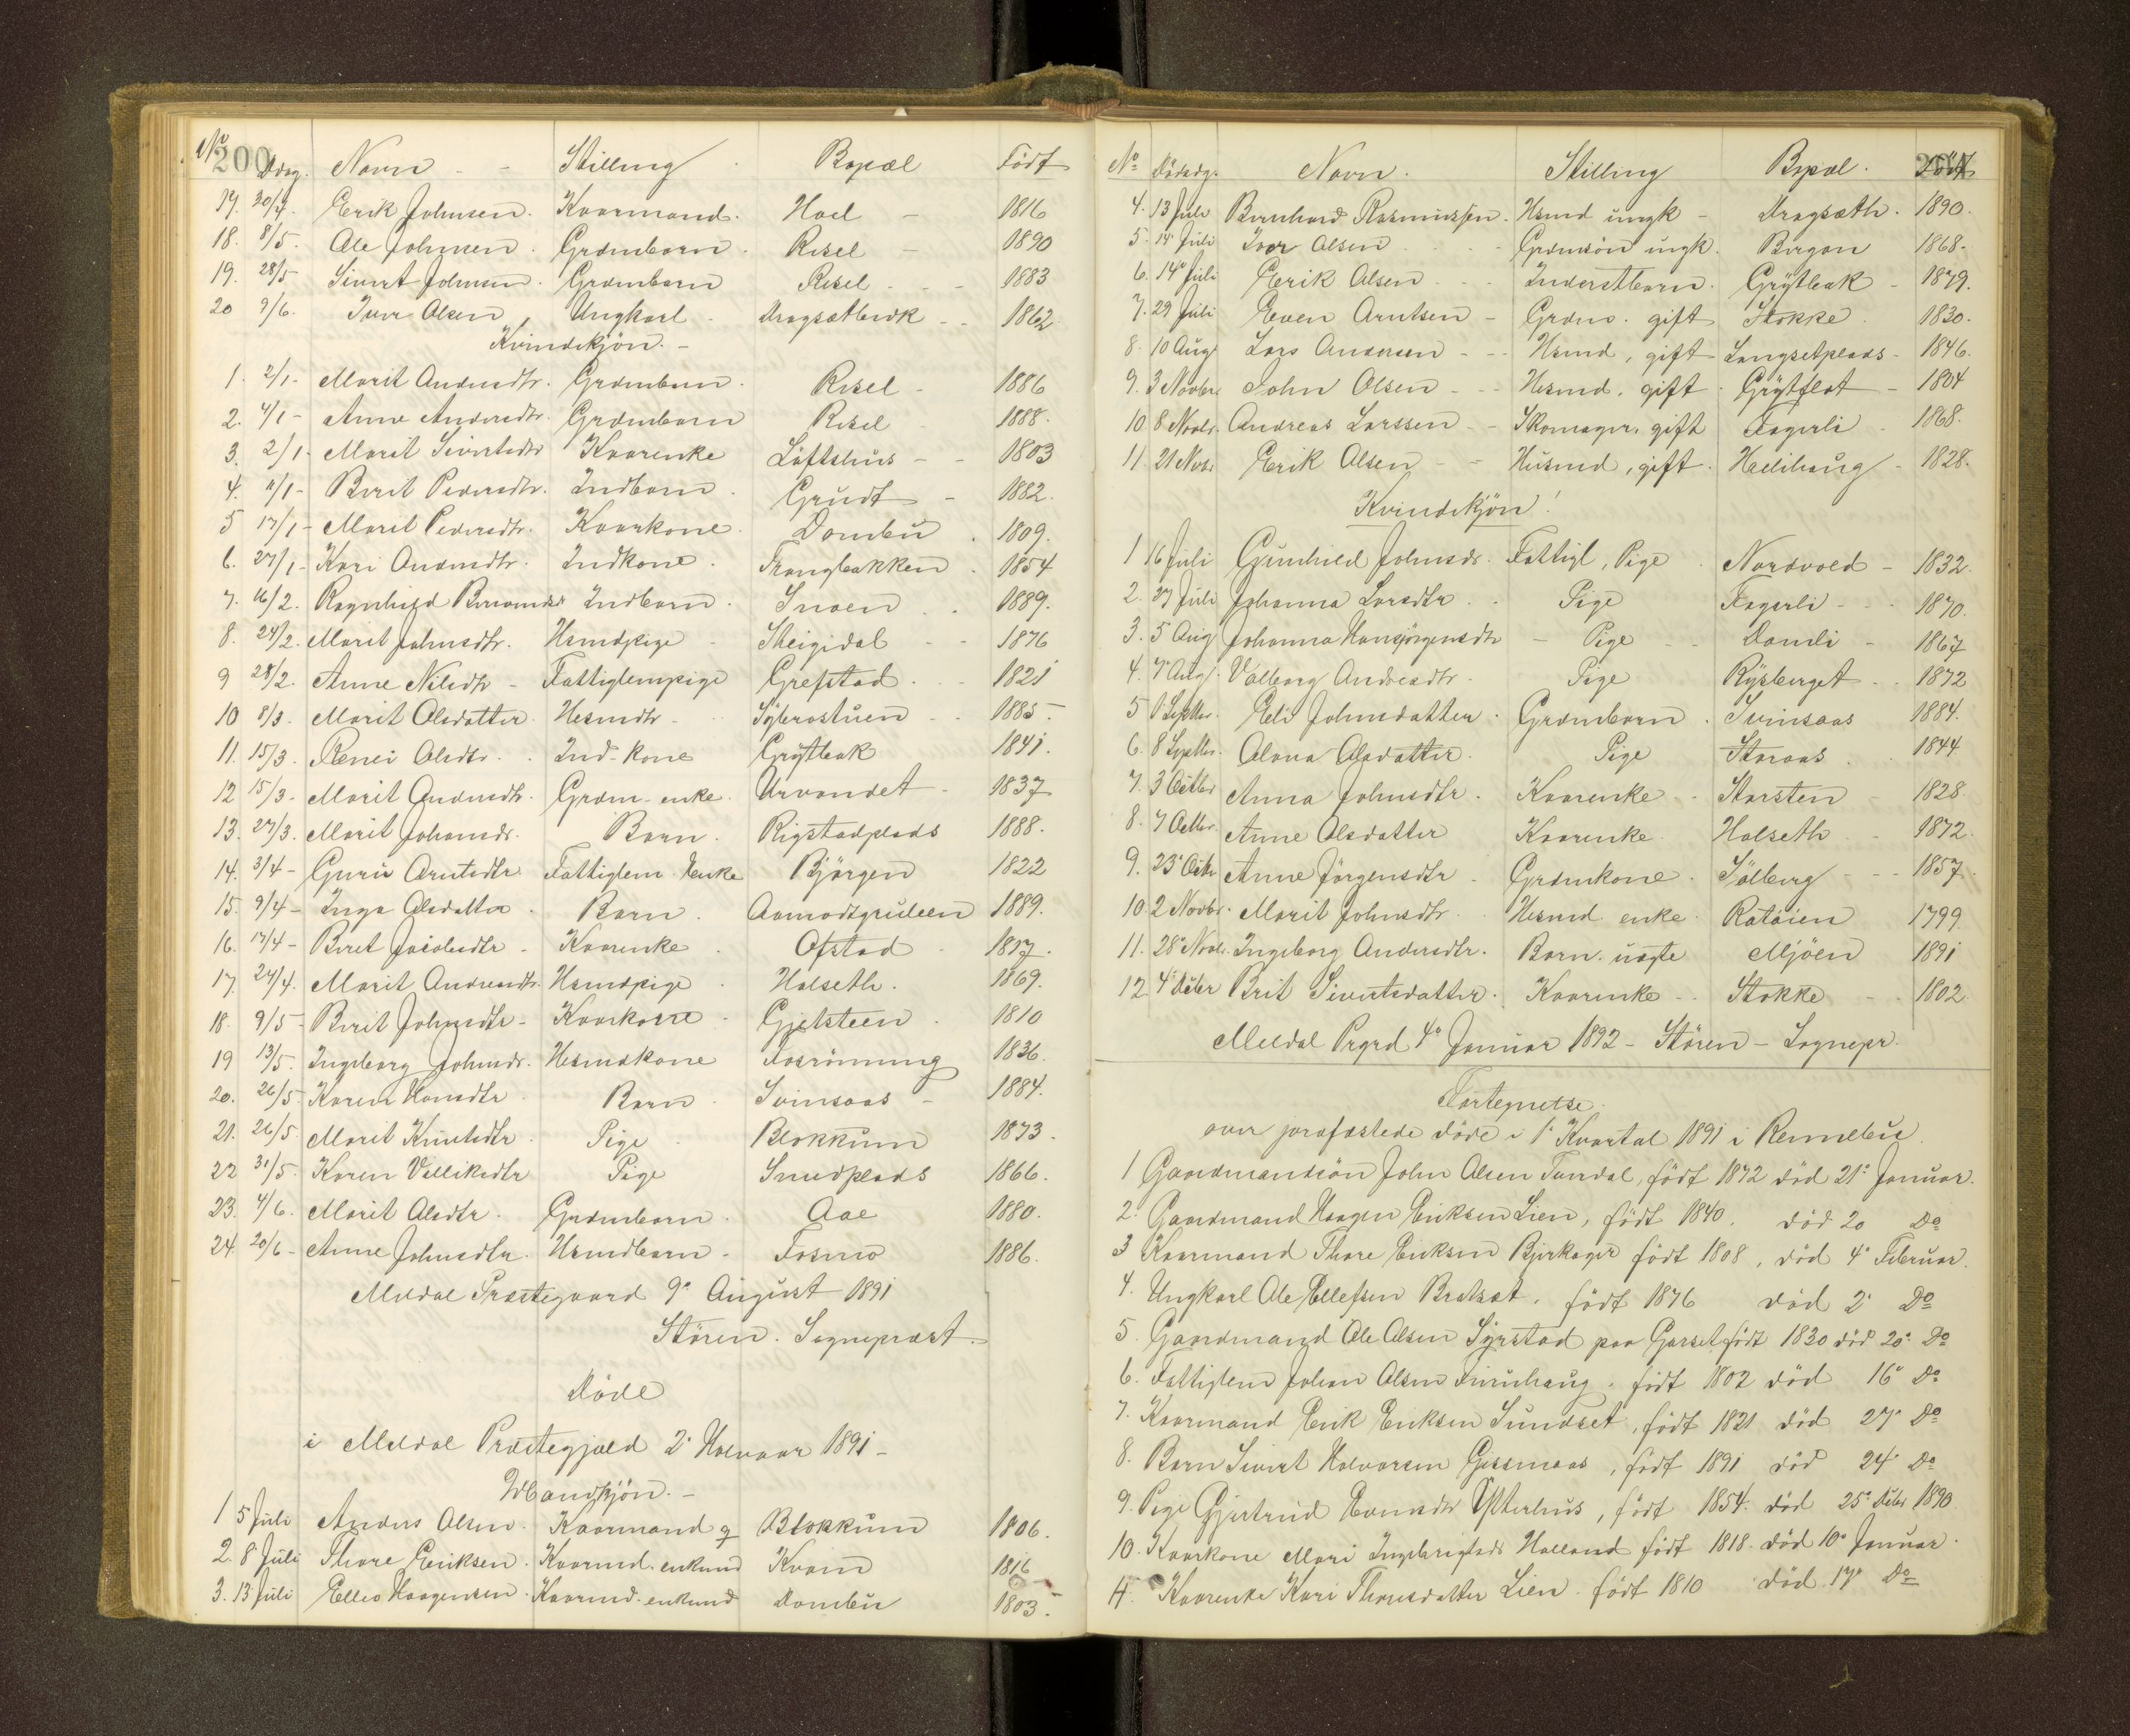 200
No Ddag. Navn Stilling Bopæl Födt
17. 30/4. Erik Johnsen. Kaarmand. Hoel 1816
18. 8/5. Ole Johnsen. Grdmbarn Resel 1890
19. 28/5 Sivert Johnsen. Grdmbarn Resel 1883
20 9/6. Iver Olsen Ungkarl Dragsætbrak 1862
Kvindekjön.
1. 2/1 Marit Andersdtr. Grdmbarn. Resel 1886
2. 4/1 Anne Andersdtr. Grdmbarn Resel 1888.
3. 2/1 Marit Sivertsdtr Kaarenke Löftshus 1803
4. 11/1 Berit Pedersdtr. Indbarn. Grudt 1882.
5 17/1 Marit Pedersdtr. Kaarkone. Dombu 1809.
6. 27/1 Kari Andersdtr. Indkone. Trangbakken 1854
7. 16/2. Ragnhild Indbarn. Snoen 1889.
8. 24/2. Marit Johnsdtr. Hsmdpige Steigidal 1876
9 28/2. Anne Nilsdtr Fattiglempige Grefstad 1821
10 8/3. Marit Olsdatter Hesmdtr. Syberostuen 1885.
11. 15/3. Renei Olsdtr. Ind-kone Grytbak 1841.
12 15/3. Marit Andersdtr. Grdm-enke. Urvandet 1837
13. 27/3. Marit Johansdr. Barn. Rigstadplads 1888.
14. 3/4 Guru Arntsdtr Fattiglem Enke Björgen 1822
15. 9/4 Inga Olsdatter Barn. Aamodtgrubeen 1889.
16. 17/4 Beret Jacobsdtr Kaarenke Ofstad 1817.
17. 24/4. Marit Andersdtr. Hsmdpige Halseth. 1869.
18. 9/5 Berit Johnsdtr Kaarkone Gjelsteen 1810
19 13/5. Ingeborg Johnsdr. Hesmdkone Fosrönning 1836.
20. 26/5. Karen Hansdtr Barn Svinsaas 1884.
21. 26/5 Marit Knutsdtr Pige Blokkum 1873.
22 31/5 Karen Vellikedtr Pige Snudplads 1866.
23. 4/6. Marit Olsdtr. Grdmbarn. Aae 1880.
24. 20/6 Anne Johnsdtr. Hsmdbarn. Fosmo 1886.
Meldal Præstegaard 9de August 1891
Stören. Sognepræst.
Döde
i Meldal Præstegjeld 2. Halvaar 1891
Mandkjön.
1 5 Juli Anders Olsen. Kaarmand g Blokkum 1806.
2. 8 Juli Thore Eriksen. Kaarmd. enkemd Kvam 1816
3. 13 Juli Ellev Haagensen. Kaarmd. enkemd Dombu 1803.
No Dödsdg. Navn. Stilling Bopæl. Födt
4. 13 Juli Bernhard Rasmussen. Hsmd ungk Dragsæth. 1890.
5. 14 Juli Ivar Olsen Grdmsön ungk. Bergan 1868.
6. 14 Juli Erik Olsen Inderstbarn. Grytbak 1879.
7. 29 Juli Even Arntsen Grdm. gift Stokke 1830.
8. 10 Aug Lars Andersen Hsmd, gift Langsetplads 1846.
9. 3 Novbr John Olsen Hesmd. gift Grytflot 1804
10 8 Novbr. Andreas Larssen Skomager. gift Fagerli 1868.
11. 21 Nov. Erik Olsen Husmd, gift. Hælihaug 1828.
Kvindekjön!
1 16 Juli Gunhild Johnsdr. Fattigl, Pige Nordvold 1832.
2. 27 Juli Johanna Larsdtr Pige Fagerli 1870.
3. 5 Aug Johanna Hansjörgensdtr Pige Damli 1867
4. 7 Aug. Valborg Andersdtr. Pige Rysberget 1872
5 Septbr. Eli Johnsdatter. Grdmbarn. Svinsaas 1884.
6. 8 Septbr. Olava Olsdatter. Pige Storaas 1844
7. 3 Octbr Anna Johnsdtr. Kaarenke Storsten 1828.
8. 7 Octbr. Anne Olsdatter Kaarenke Halseth 1872.
9. 23 Octr Anne Jörgensdtr Grdmkone. Sölberg 1857.
10. 2 Novbr. Marit Johnsdtr. Hesmd. enke Ratöien 1799.
11. 28 Novbr. Ingeborg Andersdtr. Barn. uægte Mjöen 1891
12 4 Decbr Brit Sivertsdatter. Kaarenke Stokke 1802.
Meldal Prgrd 4de Januar 1892 - Stören - Sognepr.
Fortegnelse
over jordfæstede döde i 1ste Kvartal 1891 i Rennebu
1 Gaardmandsön John Olsen Tundal, födt 1872 död 21de Januar.
2. Gaardmand Haagen Eriksen Lien, födt 1840. död 20 Do
3 Kaarmand Thore Eriksen Bjerkager födt 1808, död 4de Februar.
4. Ungkarl Ole Ellefsen Bratset. födt 1876 död 2. Do
5. Gaardmand Ole Olsen Syrstad paa Garset födt 1830 död 20. Do
6. Fattiglem Johan Olsen födt 1802 död 16 Do
7. Kaarmand Erik Eriksen Sundset, födt 1821 död 27. Do
8. Barn Sivert Halvorsen Gissmaas, födt 1891 död 24. Do
9. Pige Gjertrud Evensdtr Uskerhus, födt 1854. död 25. Decbr 1890.
10. Kaarkone Mari Ingebrigtsdr Halland födt 1818. död 10de Januar.
11. Kaarenke Kari Thoresdatter Lien. födt 1810 död 17de Do